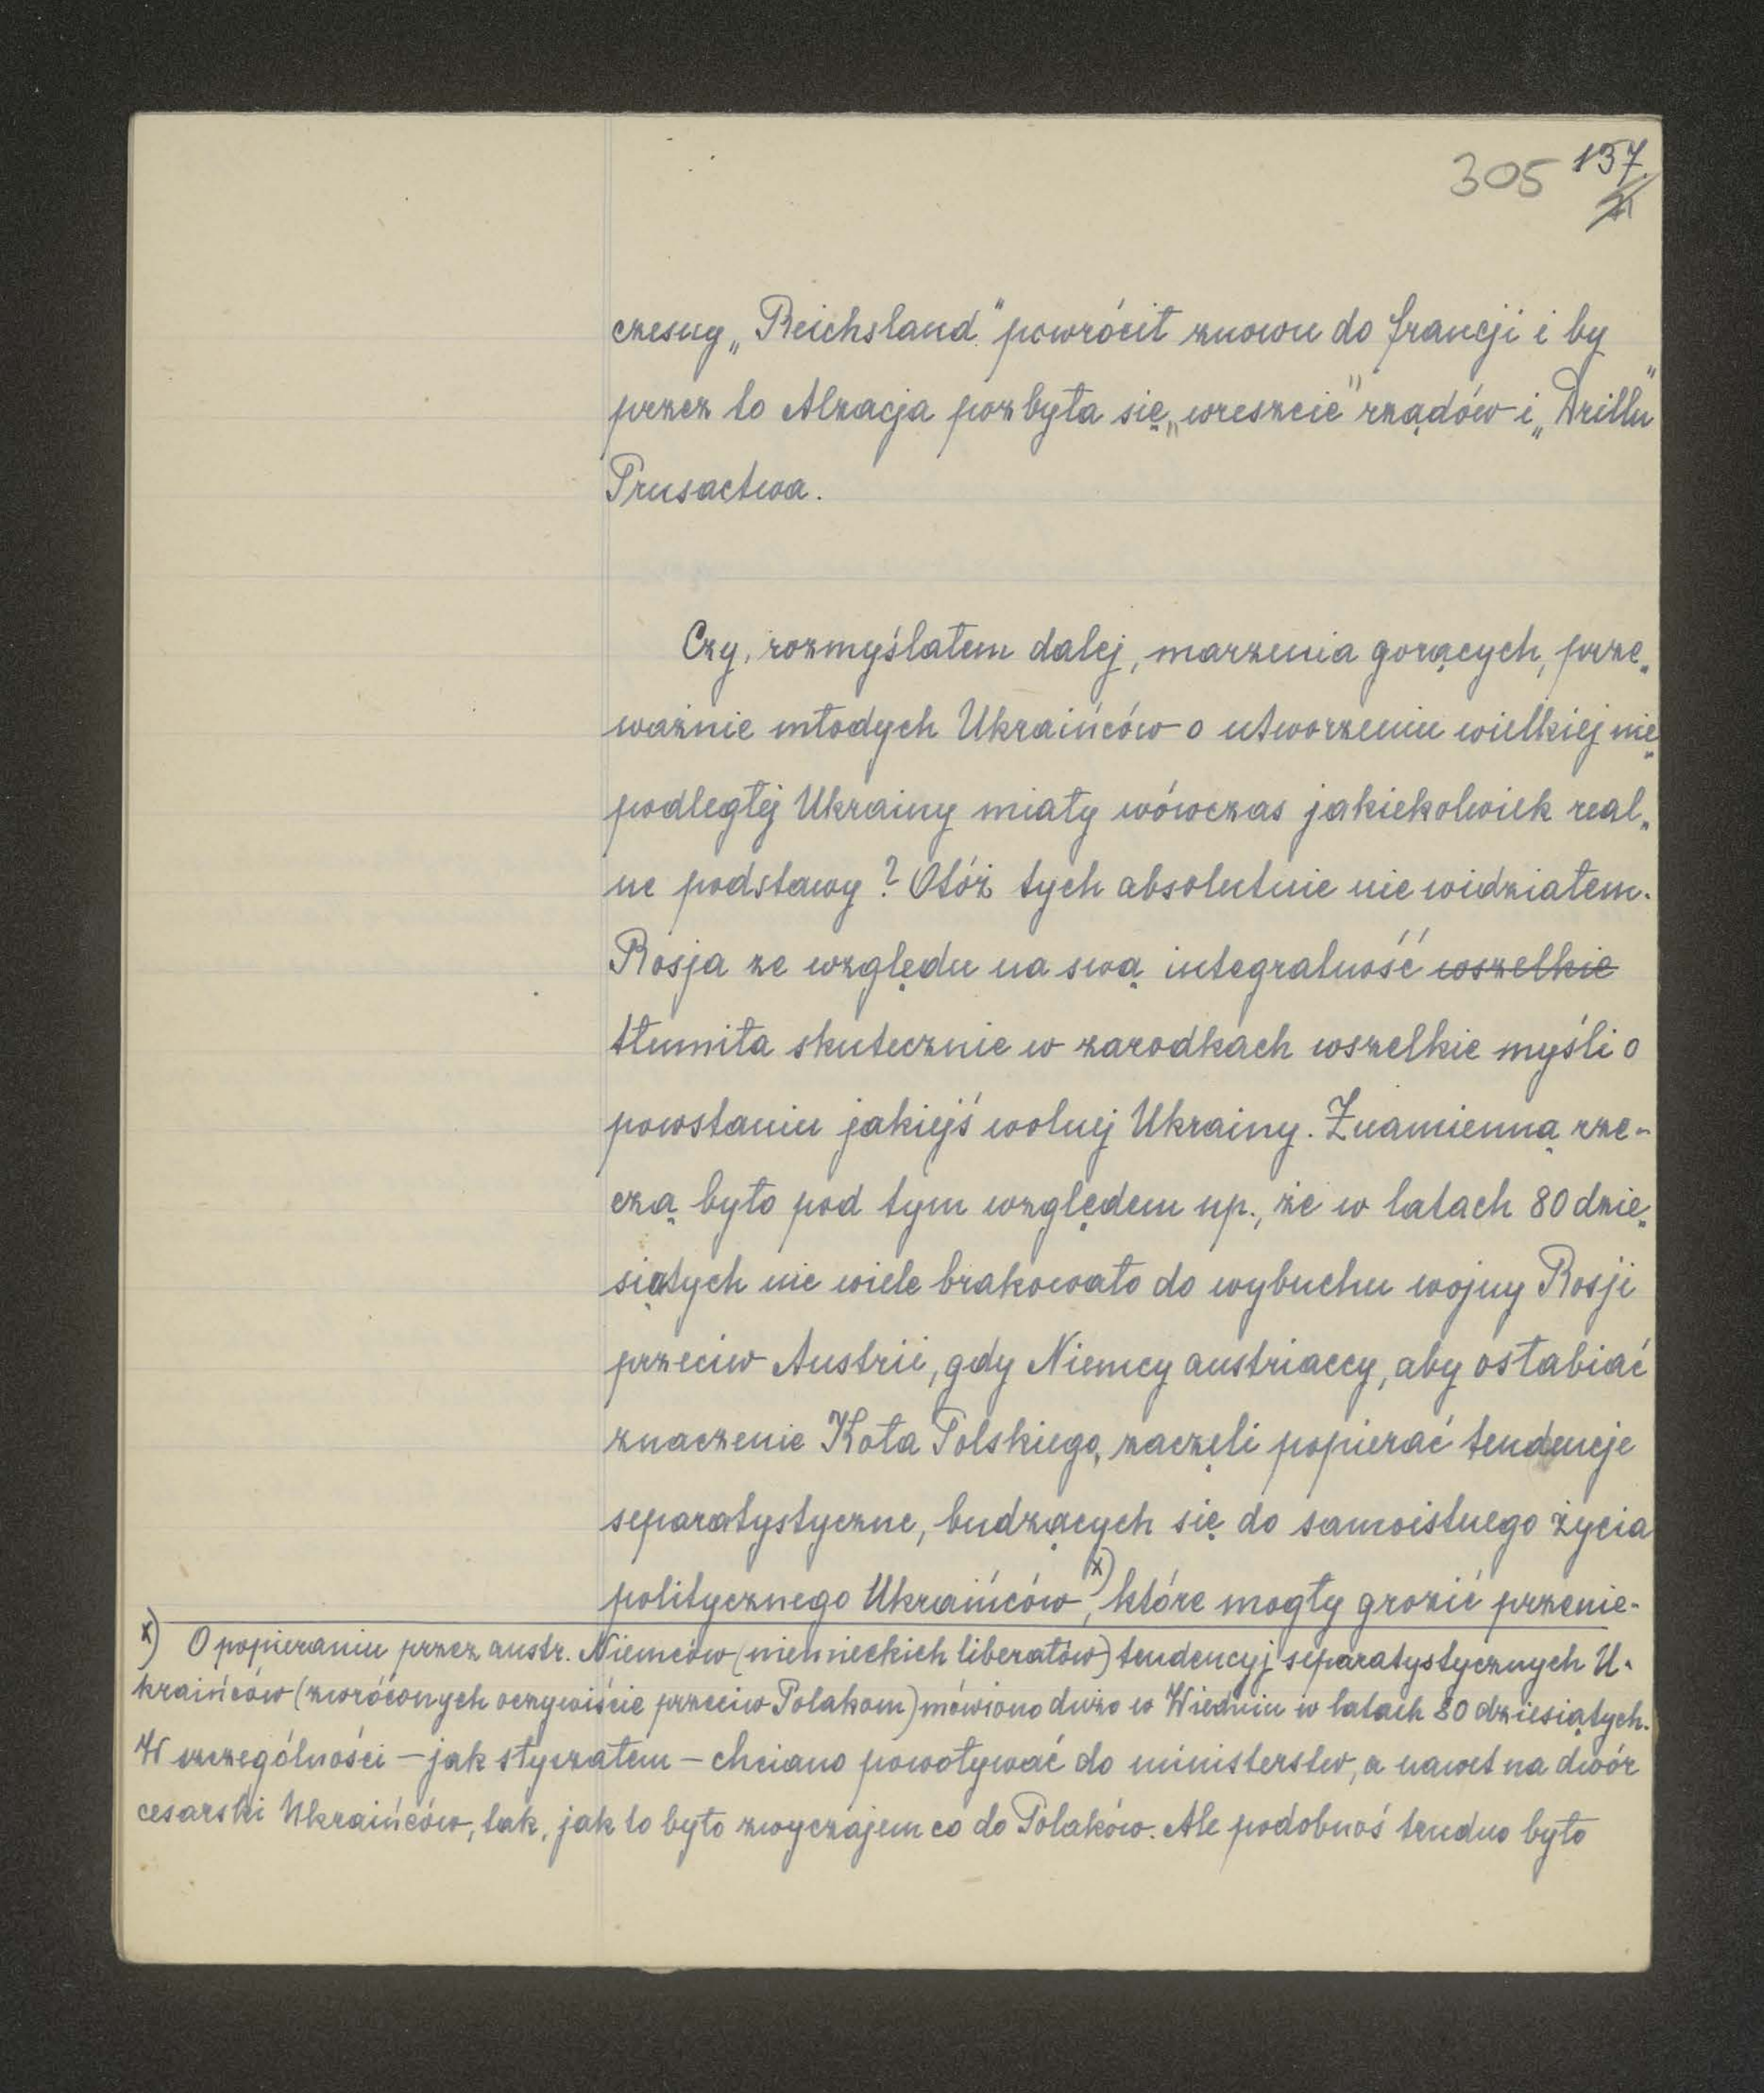 305 137.
czesny „Reichsland" powrócił znowu do francji i by
przez to Alzacja pozbyła się „wreszcie" rządów i „Drillu"
Prusactwa.
Czy, rozmyślałem dalej, marzenia gorących, prze„
ważnie młodych Ukraińców o utworzeniu wielkiej nie„
podległej Ukrainy miały wówczas jakiekolwiek real„
ne podstawy? Otóż tych absolutnie nie widziałem.
Rosja ze względu na swą integralność wszelkie
tłumiła skutecznie w zarodkach wszelkie myśli o
powstaniu jakiejś wolnej Ukrainy. Znamienną rze-
czą było pod tym względem np., że w latach 80 dzie„
siątych nie wiele brakowało do wybuchu wojny Rosji
przeciw Austrii, gdy Niemcy austriaccy, aby osłabiać
znaczenie Koła Polskiego, zaczęli popierać tendencje
separatystyczne, budzących się do samoistnego życia
politycznego Ukraińców x), które mogły grozić przenie-
x) O popieraniu przez austr. Niemców (niemieckich liberałów) tendencyj separatystycznych U-
kraińców (zwróconych oczywiście przeciw Polakom) mówiono dużo w Wiedniu w latach 80 dziesiątych.
W szczególności – jak słyszałem – chciano powoływać do ministerstw, a nawet na dwór
cesarski Ukraińców, tak, jak to było zwyczajem co do Polaków. Ale podobnoś trudno było